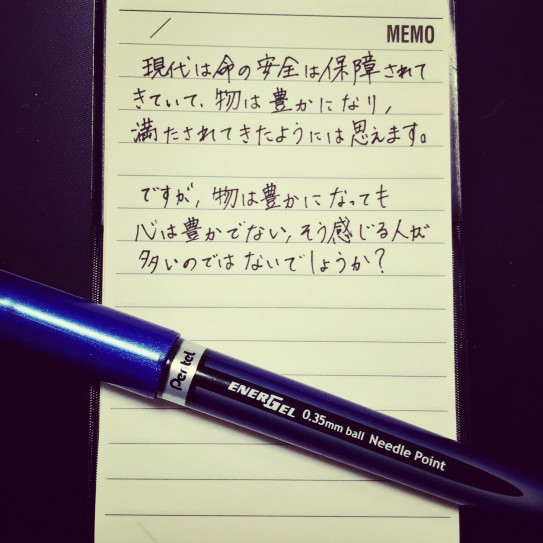 MEMO
現代は命の安全は保障されて
きていて、物は豊かになり,
満たされてきたようには思えます。
ですが,物は豊かになっても
心は豊かでない,そう感じる人が
多いのではないでしょうか?
Pentel
ENERGEL 0.35mm ball Needle Point